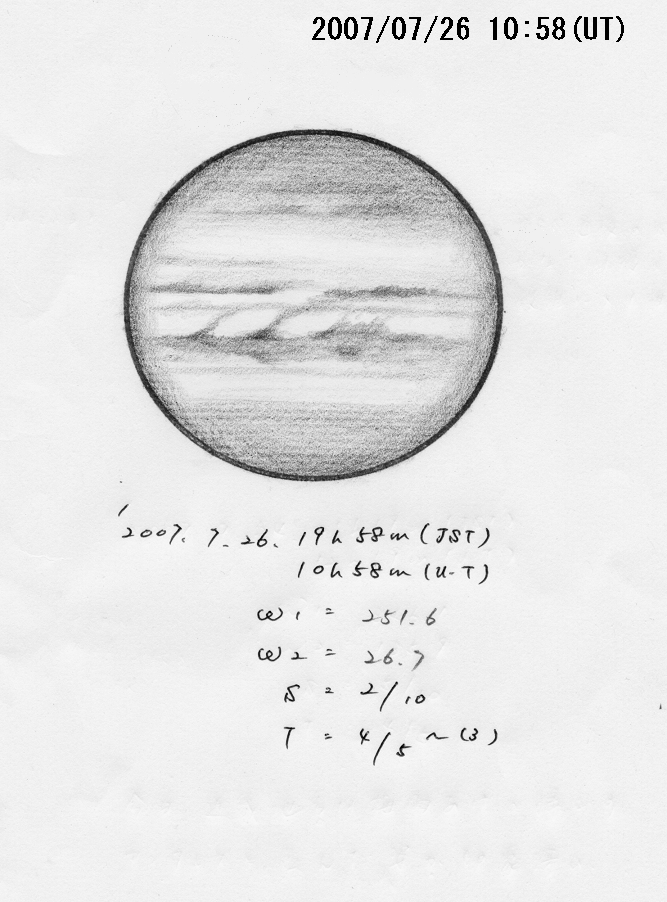 2007/07/26 10:58(UT)
'2007. 7. 26. 19h 58m (JST)
10h 58m (U-T)
ω1 = 251.6
ω2 = 26.7
S = 2/10
T = 4/5 ~ (3)